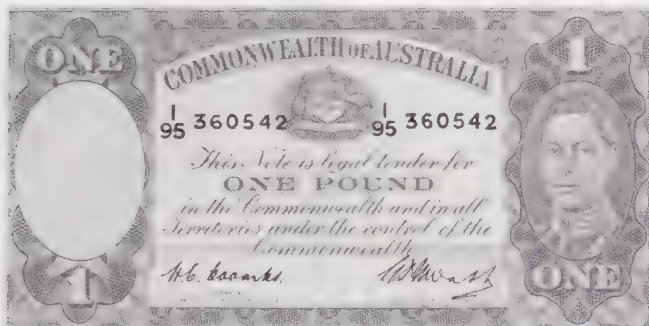 ONE
1
COMMONWEALTH OF AUSTRALIA
I/95 360542 I/95 360542
This Note is legal tender for
ONE POUND
in the Commonwealth and in all
Territories under the control of the
Commonwealth
1
ONE